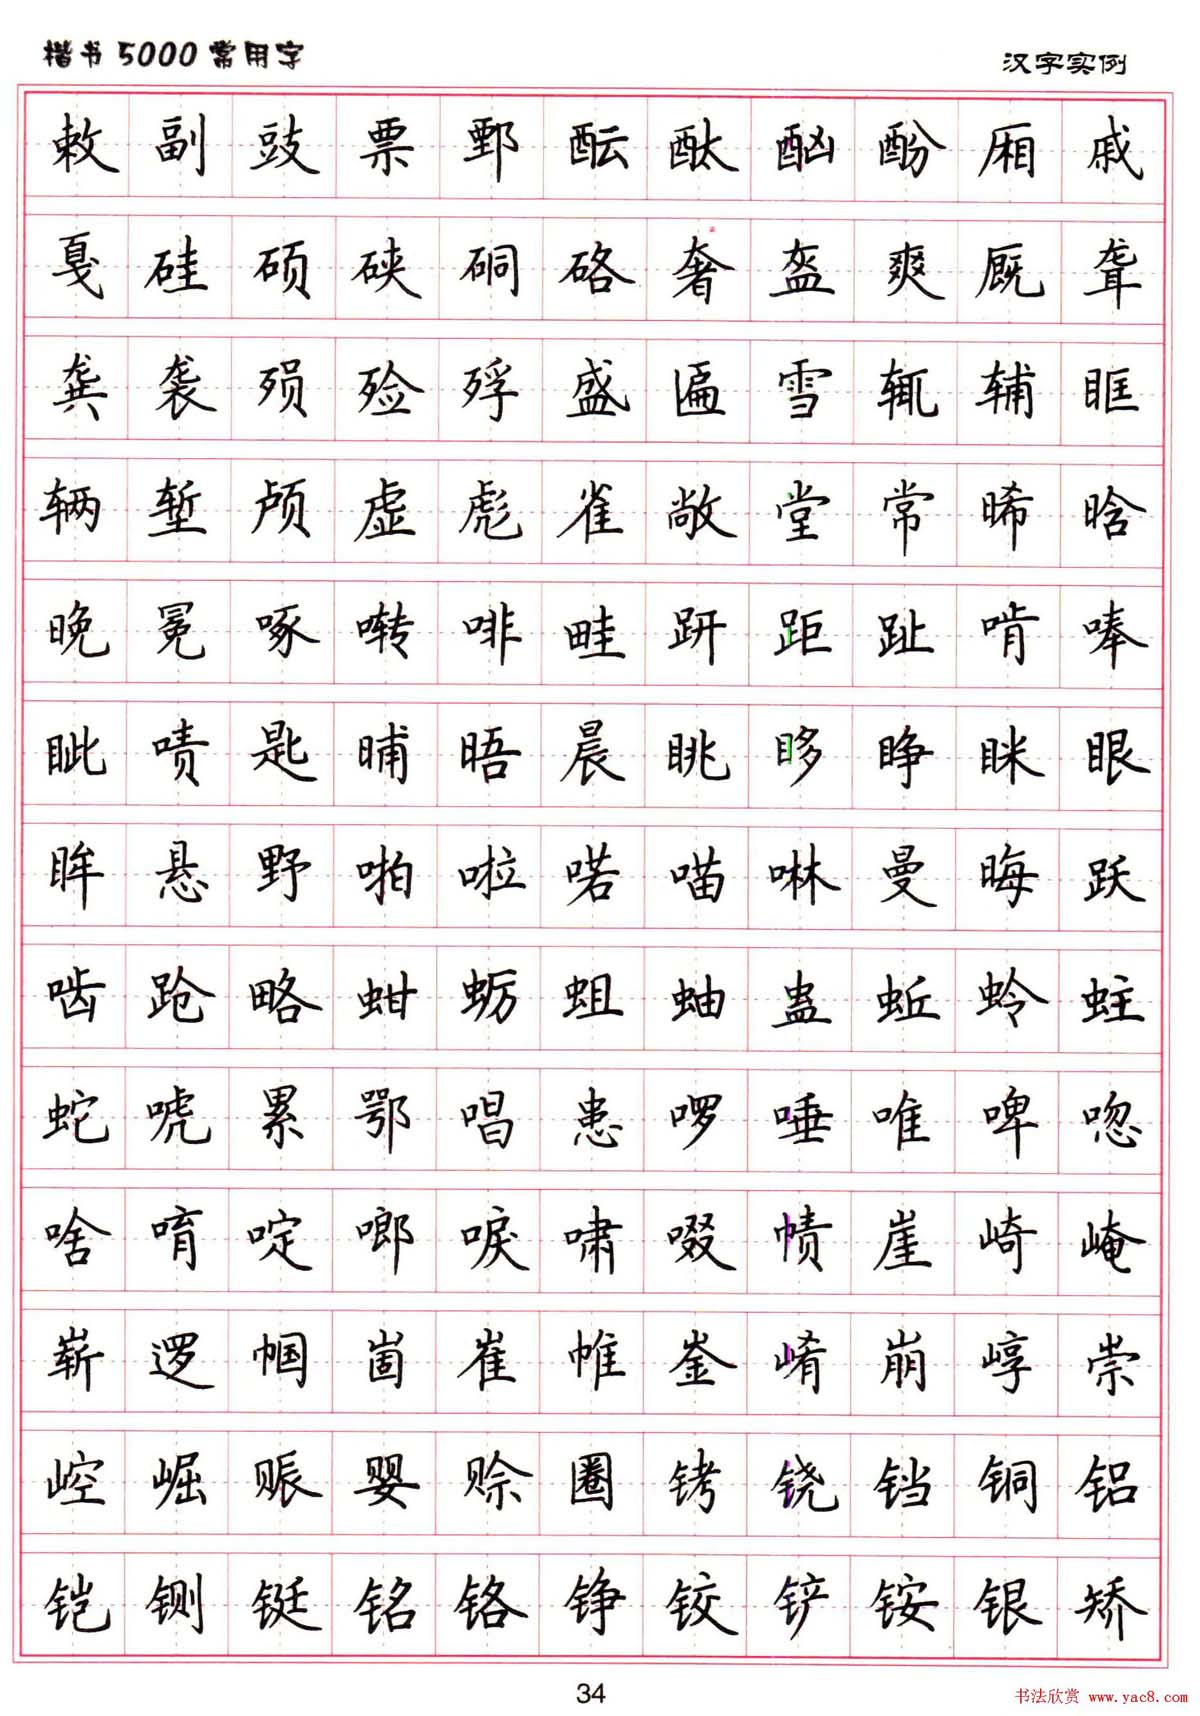 楷书5000常用字
汉字实例
敕副豉票鄄酝酞酗酚厢戚
戛硅硕硖硐硌奢盔爽厩聋
龚袭殒殓殍盛匾雪辄辅眶
辆堑颅虚彪雀敞堂常晞晗
晚冕啄啭啡畦趼距趾啃唪
眦啧匙晡晤晨眺眵睁眯眼
眸悬野啪啦喏喵啉曼晦跃
啮跄略蚶蛎蛆蚰蛊蚯蛉蛀
蛇唬累鄂唱患啰唾唯啤唿
啥唷啶啷唳啸啜帻崖崎崦
崭逻帼崮崔帷崟崤崩崞崇
崆崛赈婴赊圈铐铙铛铜铝
铠铡铤铭铬铮铰铲铵银矫
34
书法欣赏 www.yac8.com